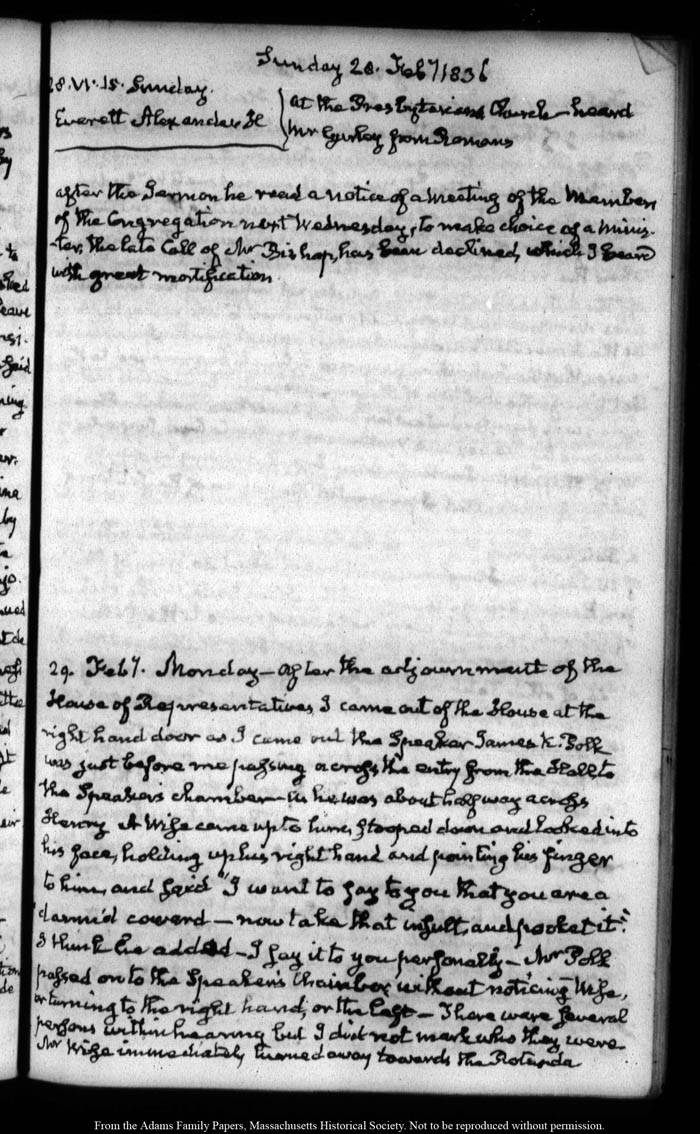 Sunday 28. Feby 1836
28. VI. 15. Sunday.
Everett Alexander H
at the Presbyterian Church — heard
Mr Gurley from Romans
after the Sermon he read a notice of a meeting of the Members
of the Congregation next Wednesday, to make choice of a minis-
ter, the late Call of Mr Bishop, has been declined, which I heard
with great mortification.
29. Feby. Monday — After the adjournment of the
House of Representatives, I came out of the House at the
right hand door as I came out the Speaker James K. Polk
was just before me passing across the entry from the Hall to
the Speaker's chamber — as he was about half way across
Henry A Wise came up to him, stooped down and looked into
his face, holding up his right hand and pointing his finger
to him, and said "I want to say to you that you are a
damn'd coward — now take that insult, and pocket it."
I think he added — I say it to you personally — Mr Polk
passed on to the Speaker's Chamber without noticing Wise,
or turning to the right hand, or the left — There were several
persons within hearing but I did not mark who they were.
Mr Wise immediately turned away towards the Rotunda
From the Adams Family Papers, Massachusetts Historical Society. Not to be reproduced without permission.